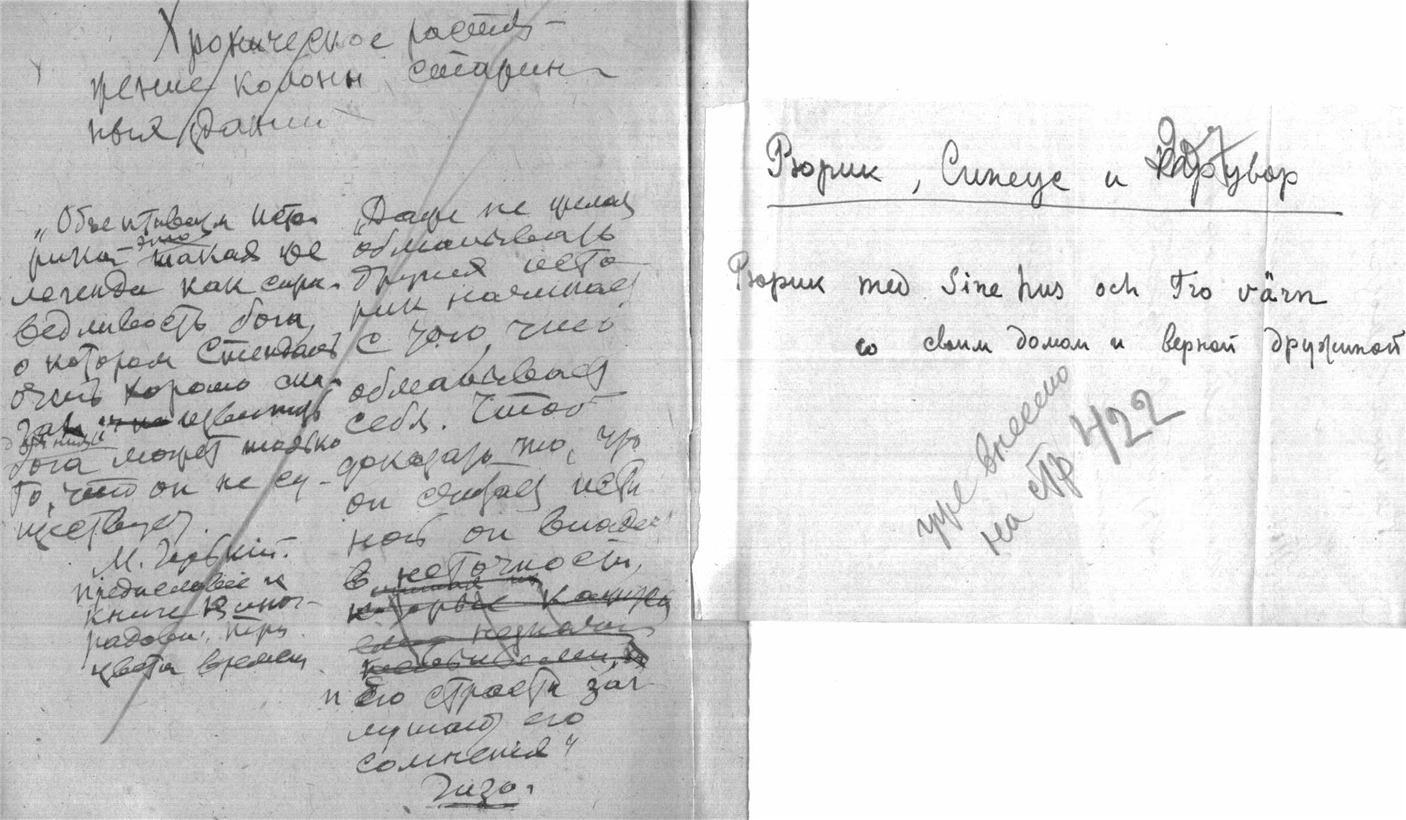 Хроническое растя-
жение колонн старин-
ных зданий
„Объективизм исто-
рика - это такая же
легенда как спра-
ведливость бога,
о котором Стендаль
очень хорошо ска-
зал: извинить
бога может только
то, что он не су-
ществует.
М. Горький.
предисловие к
книге Виног-
радова „Три
цвета времени
„Даже не желая
обманывать
других исто-
рик начинает
с того, что
обманывает
себя. Чтоб
доказать то, что
он считает исти
ной он впадает
в неточности,
которые кажутся
ему
и Его страсти заг
лушают его
сомнения"
Гизо.
Рюрик, Синеус и Трувор
Рюрик med Sine hus och Tro värn
со своим домом и верной дружиной
уже внесено
на стр 422